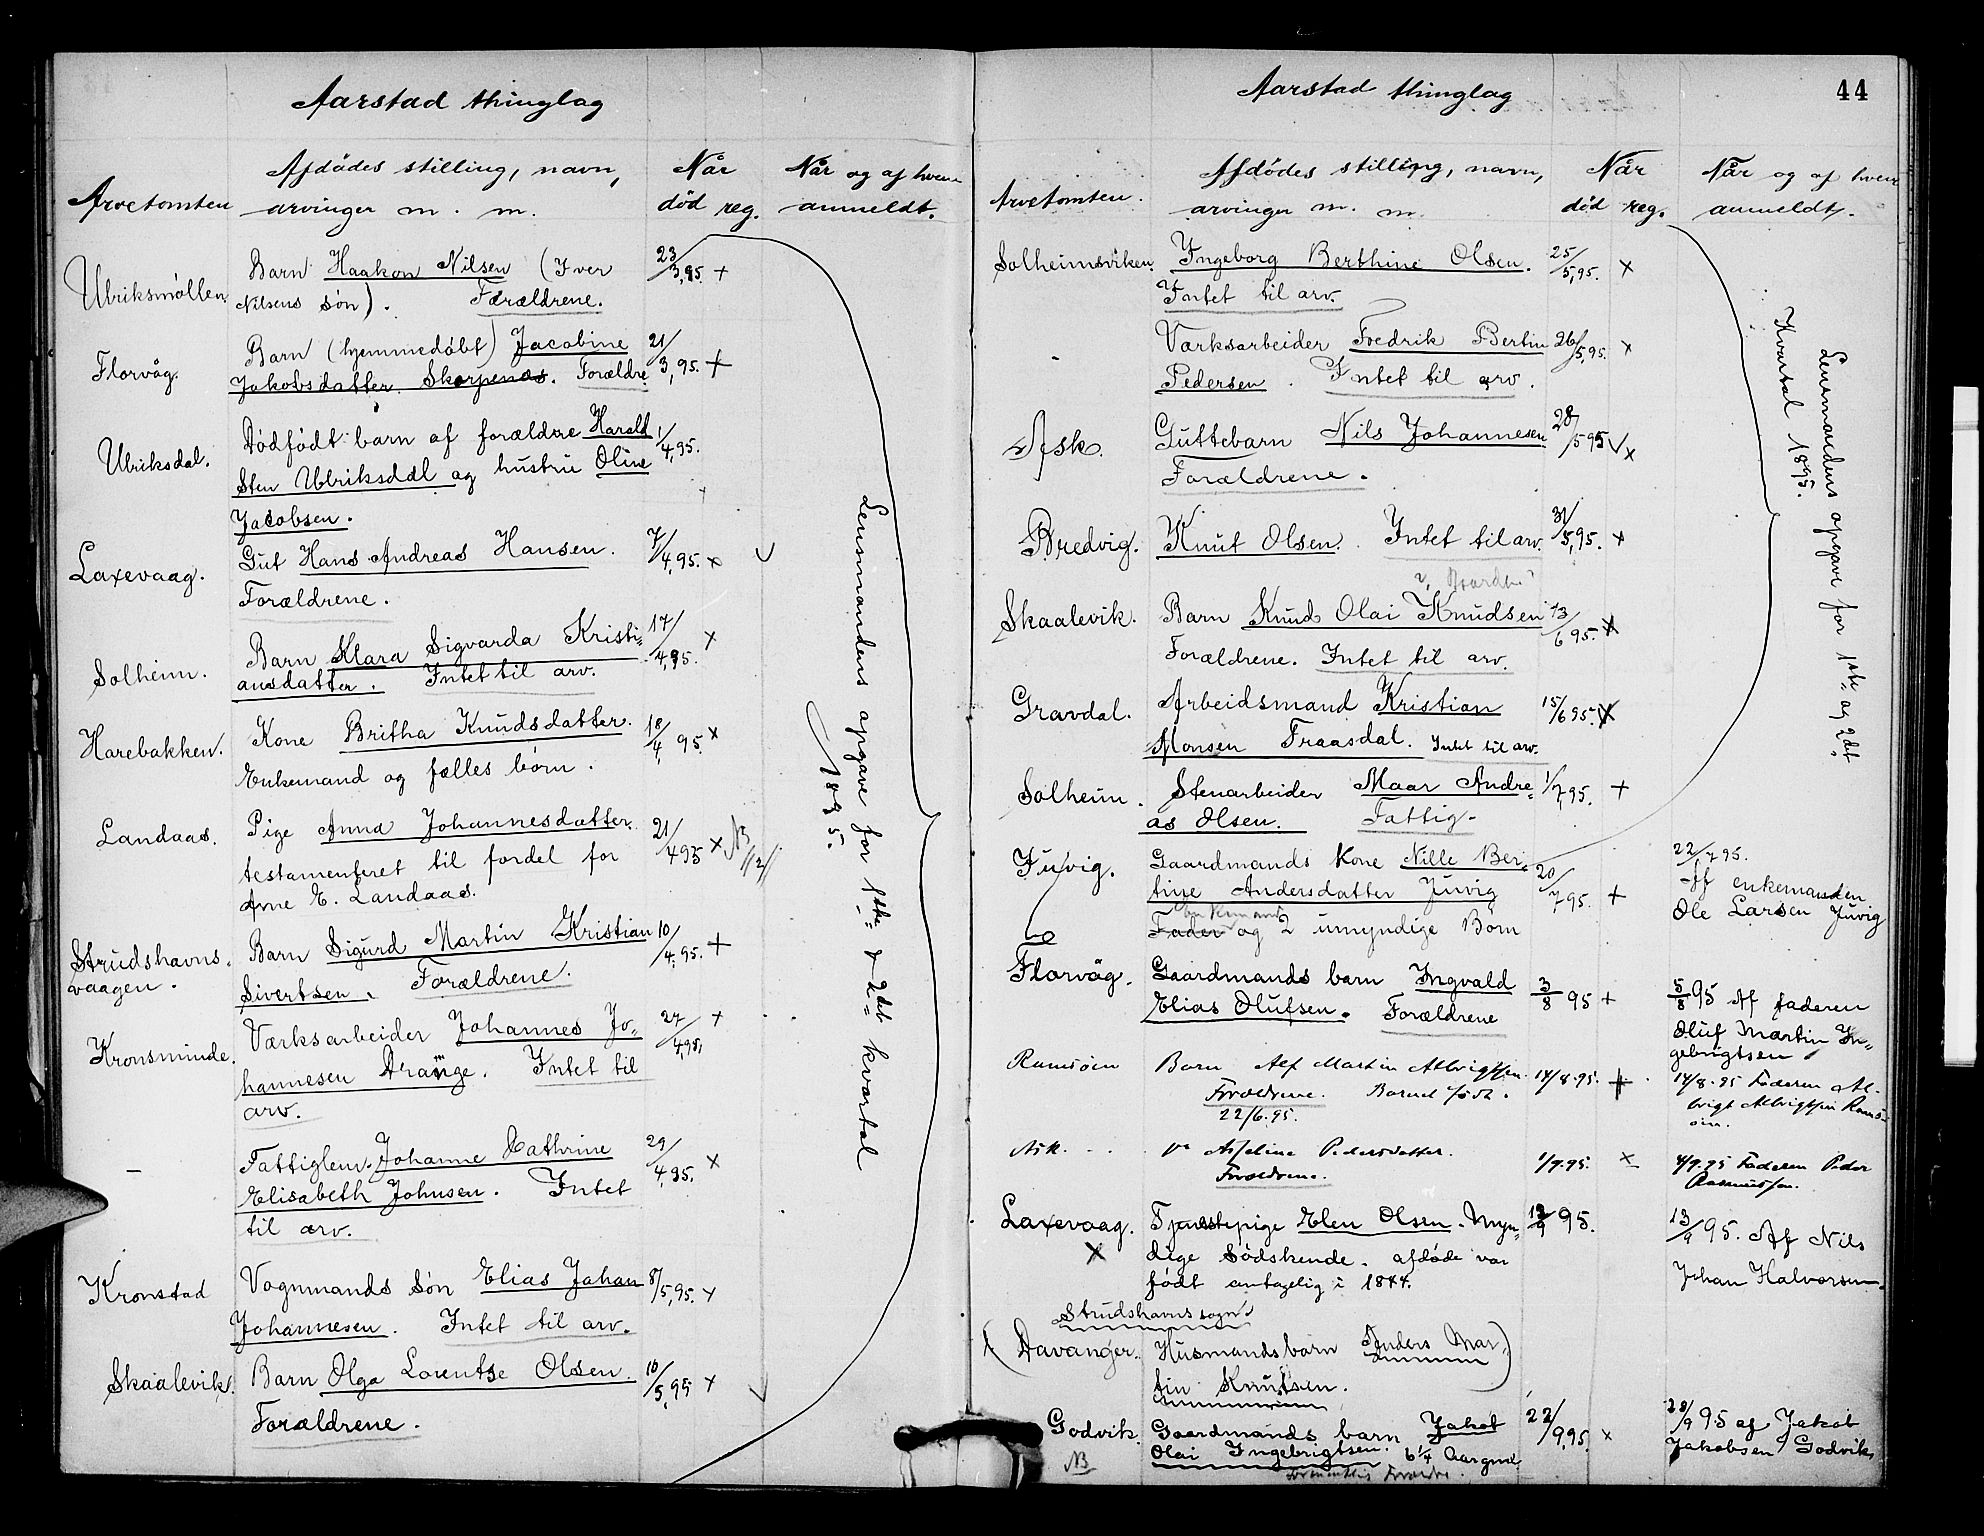 Aarstad thinglag
Arvetomten
Afdödes stilling, navn,
arvinger m. m.
Når
död reg.
Når og af hvem
anmeldt.
Ulriksmöllen.
Barn Haakon Nilsen (Iver
Nilsens sön). Forældrene.
23/3, 95. +
Florvåg.
Barn (hjemmedöbt) Jacobine
Jakobsdatter Skarpenæs. Forældre
21/3, 95. +
Ulriksdal.
Dödfödt barn af forældre Harald
Sten Ulriksdal og hustru Oline
Jacobsen.
1/4, 95.
Laxevaag.
Gut Hans Andreas Hansen.
Forældrene.
7/4, 95. x
Solheim.
Barn Klara Sigvarda Kristi-
ansdatter. Intet til arv.
17/4, 95. x
Harebakken.
Kone Britha Knudsdatter.
Enkemand og fælles börn.
18/4, 95. x
Landaas.
Pige Anna Johannesdatter
testamenteret til fordel for
Arne E. Landaas.
21/4 95 x
Strudshavns-
vaagen.
Barn Sigurd Martin Kristian
Sivertsen. Forældrene.
10/4, 95. +
Kronsminde.
Værksarbeider Johannes Jo-
hannesen Drange. Intet til
arv.
27/4, 95, +
—
Fattiglem. Johanne Cathrine
Elisabeth Johnsen. Intet
til arv.
29/4, 95. x
Kronstad
Vognmands sön Elias Johan
Johannesen. Intet til arv.
8/5, 95. x
Skaalevik.
Barn Olga Lorentse Olsen.
Forældrene.
10/5, 95 x
Lensmandens opgave for 1ste & 2det kvartal
1895.
Aarstad thinglag
44
Arvetomten.
Afdödes stilling, navn,
arvinger m. m.
Når
död reg.
Når og af hvem
anmeldt.
Solheimsviken.
Ingeborg Berthine Olsen.
Intet til arv.
25/5, 95. x
Værksarbeider Fredrik Bertin
Pedersen. Intet til arv.
26/5, 95. x
Ask.
Guttebarn Nils Johannesen
Forældrene.
28/5 95 x
Bredvig.
Knut Olsen. Intet til arv.
31/5, 95. +
Skaalevik.
Barn Knud Olai Knudsen
Forældrene. Intet til arv.
13/6 95. x
Gravdal.
Arbeidsmand Kristian
Monsen Fraasdal. Intet til arv.
15/6 95. x
Solheim.
Stenarbeider Maar Andre-
as Olsen. Fattig-
1/7, 95. +
Lensmandens opgave for 1ste og 2det
Kvartal 1895.
Juvig.
Gaardmands kone Nille Ber-
tine Andersdatter Juvig
enkemand
Fader og 2 umyndige Börn
20/7 95. +
22/7 95.
Af enkemanden
Ole Larsen Juvig
Florvåg.
Gaardmands barn Ingvald
Elias Olufsen. Forældrene
3/8 95 +
5/8 95 Af faderen
Oluf Martin In-
gebrigtsen
Ramsöen
Barn Alf Martin Albrigtsen.
Forældrene. Barnet födt.
22/6.95.
14/8.95. +
14/8.95 Faderen Al-
brigt Albrigtsen Rams-
öen.
Ask.
Pedersdatter.
Forældrene.
1/9.95. x
4/9.95 Faderen Peder
Rasmussen.
Laxevaag.
x
Tjenstepige Elen Olsen. Myn-
dige södskende. afdöde var
födt antagelig i 1844.
12/9 95.
13/9 95. Af Nils
Johan Halvorsen.
Strudshavns sogn
(Davanger. Husmandsbarn Anders Mar-)
tin Knutsen.
Godvik.
NB
Gaardmands barn Jakob
Olai Ingebrigtsen. 6 1/4 Aargml
22/9, 95. x
28/9 95 af Jakob
Jakobsen Godvik